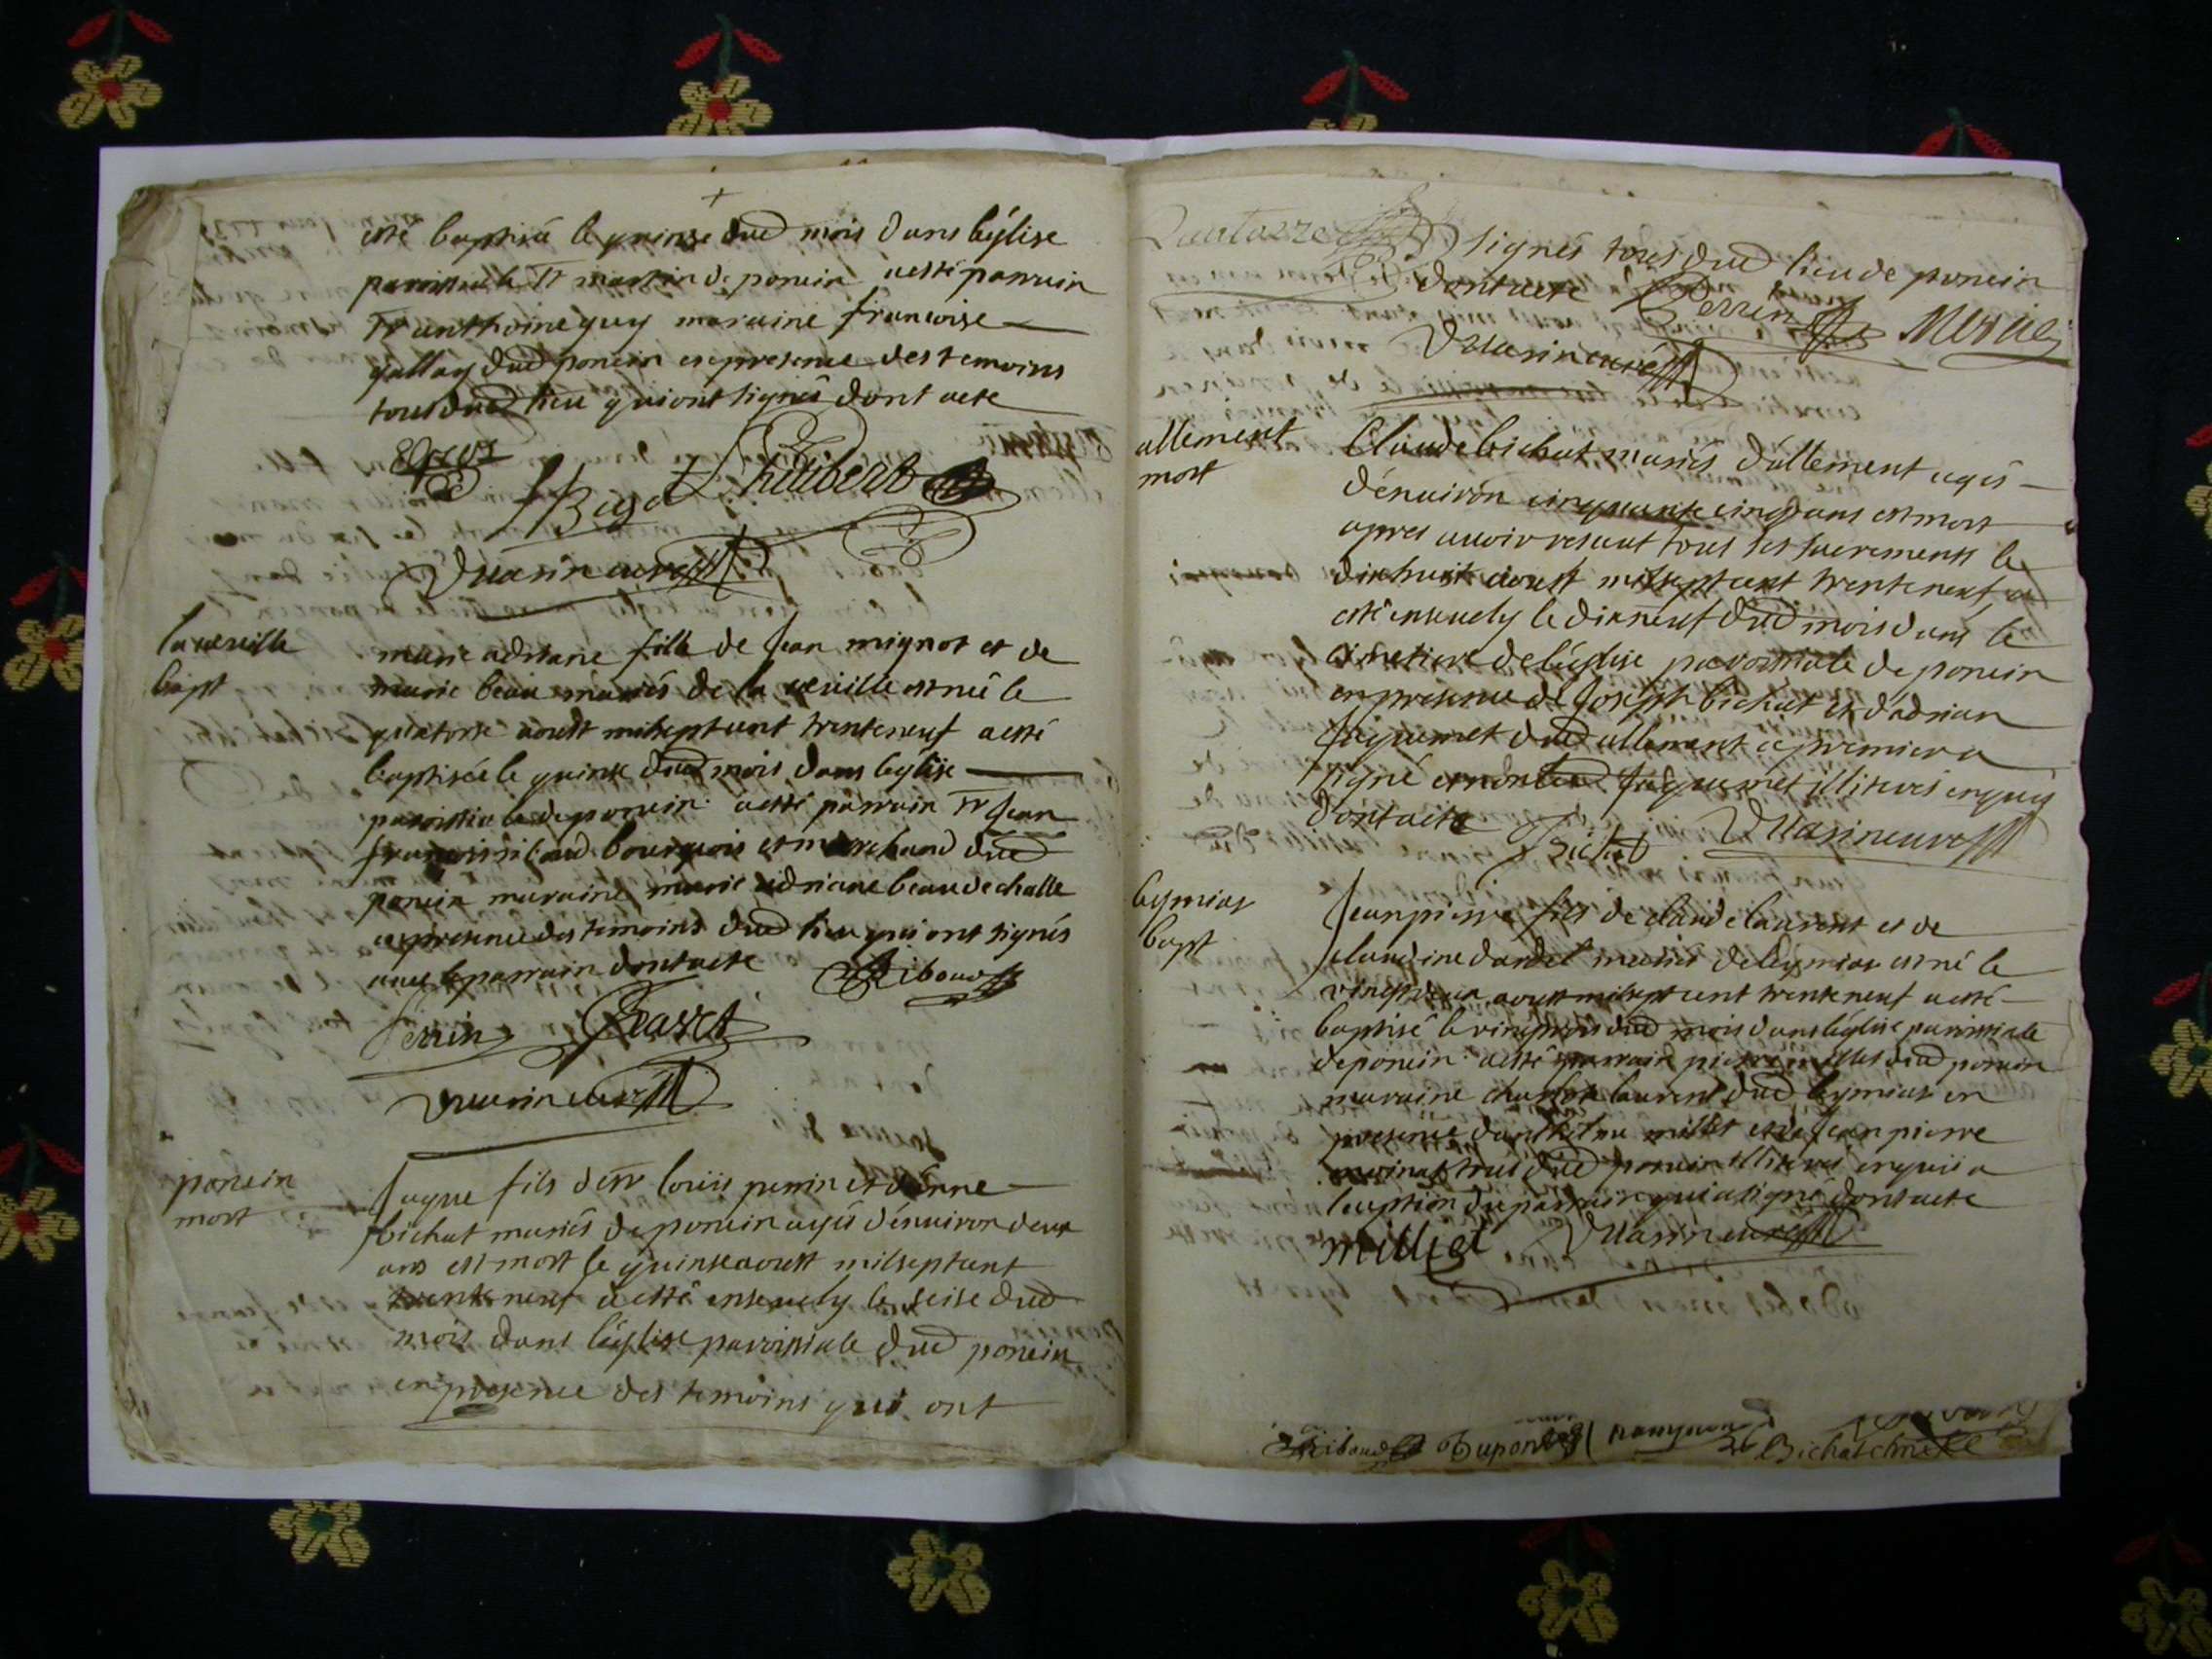 esté baptisé le quinze dud mois dans l'église
parroissiale St martin de poncin a esté parrain
Sr anthoine guy maraine francoise
gallay dud poncin en presence des temoins
tous dud lieu qui ont signés dont acte
Bigot Philibert
Vuarin curé
la verville
bapt
marie adriane fille de Jean mignot et de
marie beau mariés de la verville est née le
quatorse aoust mil sept cent trente neuf a esté
baptisée le quinse dud mois dans l'église
parroissiale de poncin a esté parrain Sr Jean
francois ribaud bourgeois et marchand dud
poncin maraine marie adriane beau de challe
en presence des temoins dud lieu qui ont signés
avec le parrain dont acte Ribaud
Perrin
Vuarin curé
poncin
mort
Jaque fils de Sr louis perrin et d'enne
bichat mariés de poncin agés d'environ deux
ans est mort le quinse aoust mil sept cent
trente neuf a esté ensevely le seise dud
mois dans l'église parroissiale dud poncin
en presence des temoins qui ont
signés tous dud lieu de poncin
dont acte Perrin
Vuarin curé
allement
mort
Claude bichat mariés d'allement agés
d'environ cinquante cinq ans est mort
apres avoir resceut tous ses sacrements le
dixhuit aoust mil sept cent trente neuf a
esté ensevely le dixneuf dud mois dans le
cimetiere de l'église parroissiale de poncin
en presence de Joseph bichat et d'adrian
Jaquemet dud allement le premier a
signé et non led Jaquemet illiteres enquis
dont acte Bichat Vuarin curé
leymiat
bapt
Jean pierre fils de claude laurent et de
claudine dandel mariés de leymiat est né le
vingt deux aoust mil sept cent trente neuf a esté
baptisé le vingt trois dud mois dans l'église parroissiale
de poncin a esté parrain pierre millet dud poncin
maraine laurent dud leymiat en
presence d'anthelme millet et de Jean pierre
tous dud poncin illiteres enquis a
l'eception du parrain qui a signé dont acte
milliet Vuarin curé
Ribaud Dupont Bichat